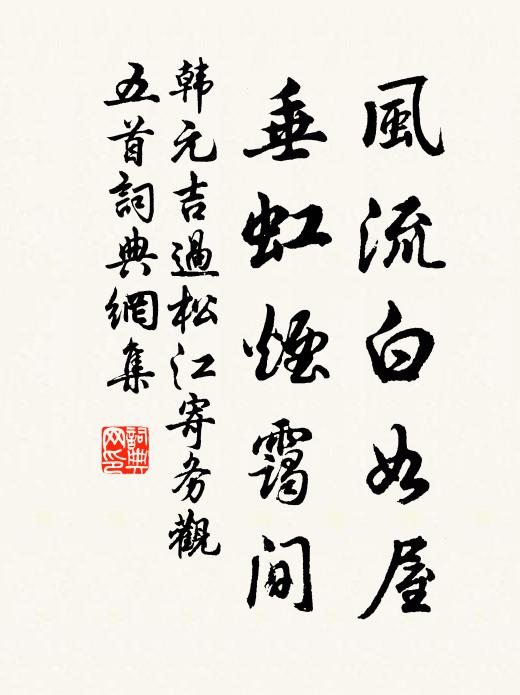 風流白如屋
垂虹煙靄間
韩元吉過松江寄务觀
五首詞典網集
詞典
网印